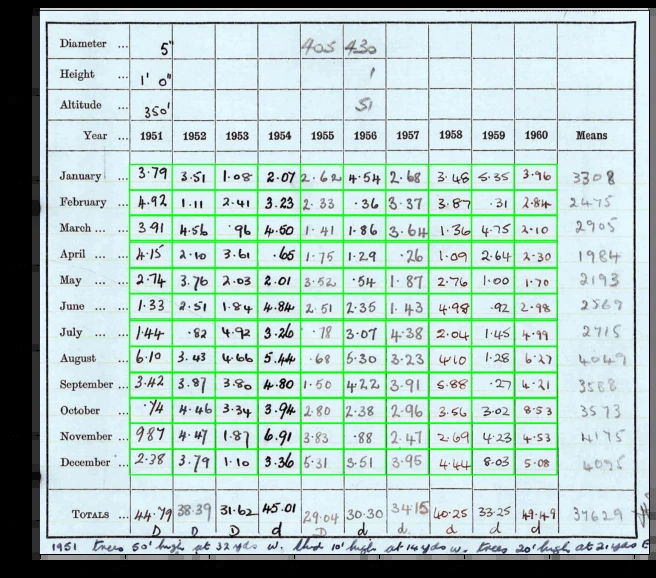 Diameter ... 5" 405 430
Height ... 1' 0" 1
Altitude ... 350' 51
Year ... 1951 1952 1953 1954 1955 1956 1957 1958 1959 1960 Means
January ... 3.79 3.51 1.08 2.07 2.62 4.54 2.68 3.48 5.35 3.96 3308
February ... 4.92 1.11 2.41 3.23 2.33 .36 3.37 3.87 .31 2.84 2475
March ... ... 3.91 4.56 .96 4.50 1.41 1.86 3.64 1.36 4.75 2.10 2905
April ... ... 4.15 2.10 3.61 .65 1.75 1.29 .26 1.09 2.64 2.30 1984
May ... ... 2.74 3.76 2.03 2.01 3.52 .54 1.87 2.76 1.00 1.70 2193
June ... ... 1.33 2.51 1.84 4.84 2.51 2.35 1.43 4.98 .92 2.98 2569
July ... ... 1.44 .82 4.92 3.26 .78 3.07 4.38 2.04 1.45 4.99 2715
August ... 6.10 3.43 4.66 5.44 .68 5.30 3.23 4.10 1.28 6.27 4049
September ... 3.42 3.87 3.80 4.80 1.50 4.22 3.91 5.88 .27 4.21 3588
October ... .74 4.46 3.34 3.94 2.80 2.38 2.96 3.56 3.02 8.53 3573
November ... 9.87 4.47 1.87 6.91 3.83 .88 2.47 2.69 4.23 4.53 4175
December ... 2.38 3.79 1.10 3.36 5.31 3.51 3.95 4.44 8.03 5.08 4095
TOTALS ... 44.79 38.39 31.62 45.01 29.04 30.30 34.15 40.25 33.25 49.49 37629
D D D d D d d. d d d
1951 trees 50' high at 32 yds W. 10' high at 14 yds W. trees 20' high at 21 yds E